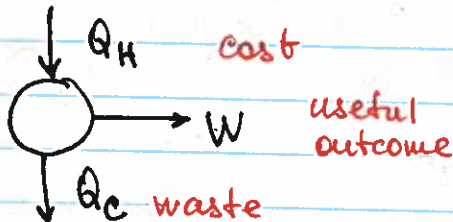 Q_H cost
W useful
outcome
Q_C waste